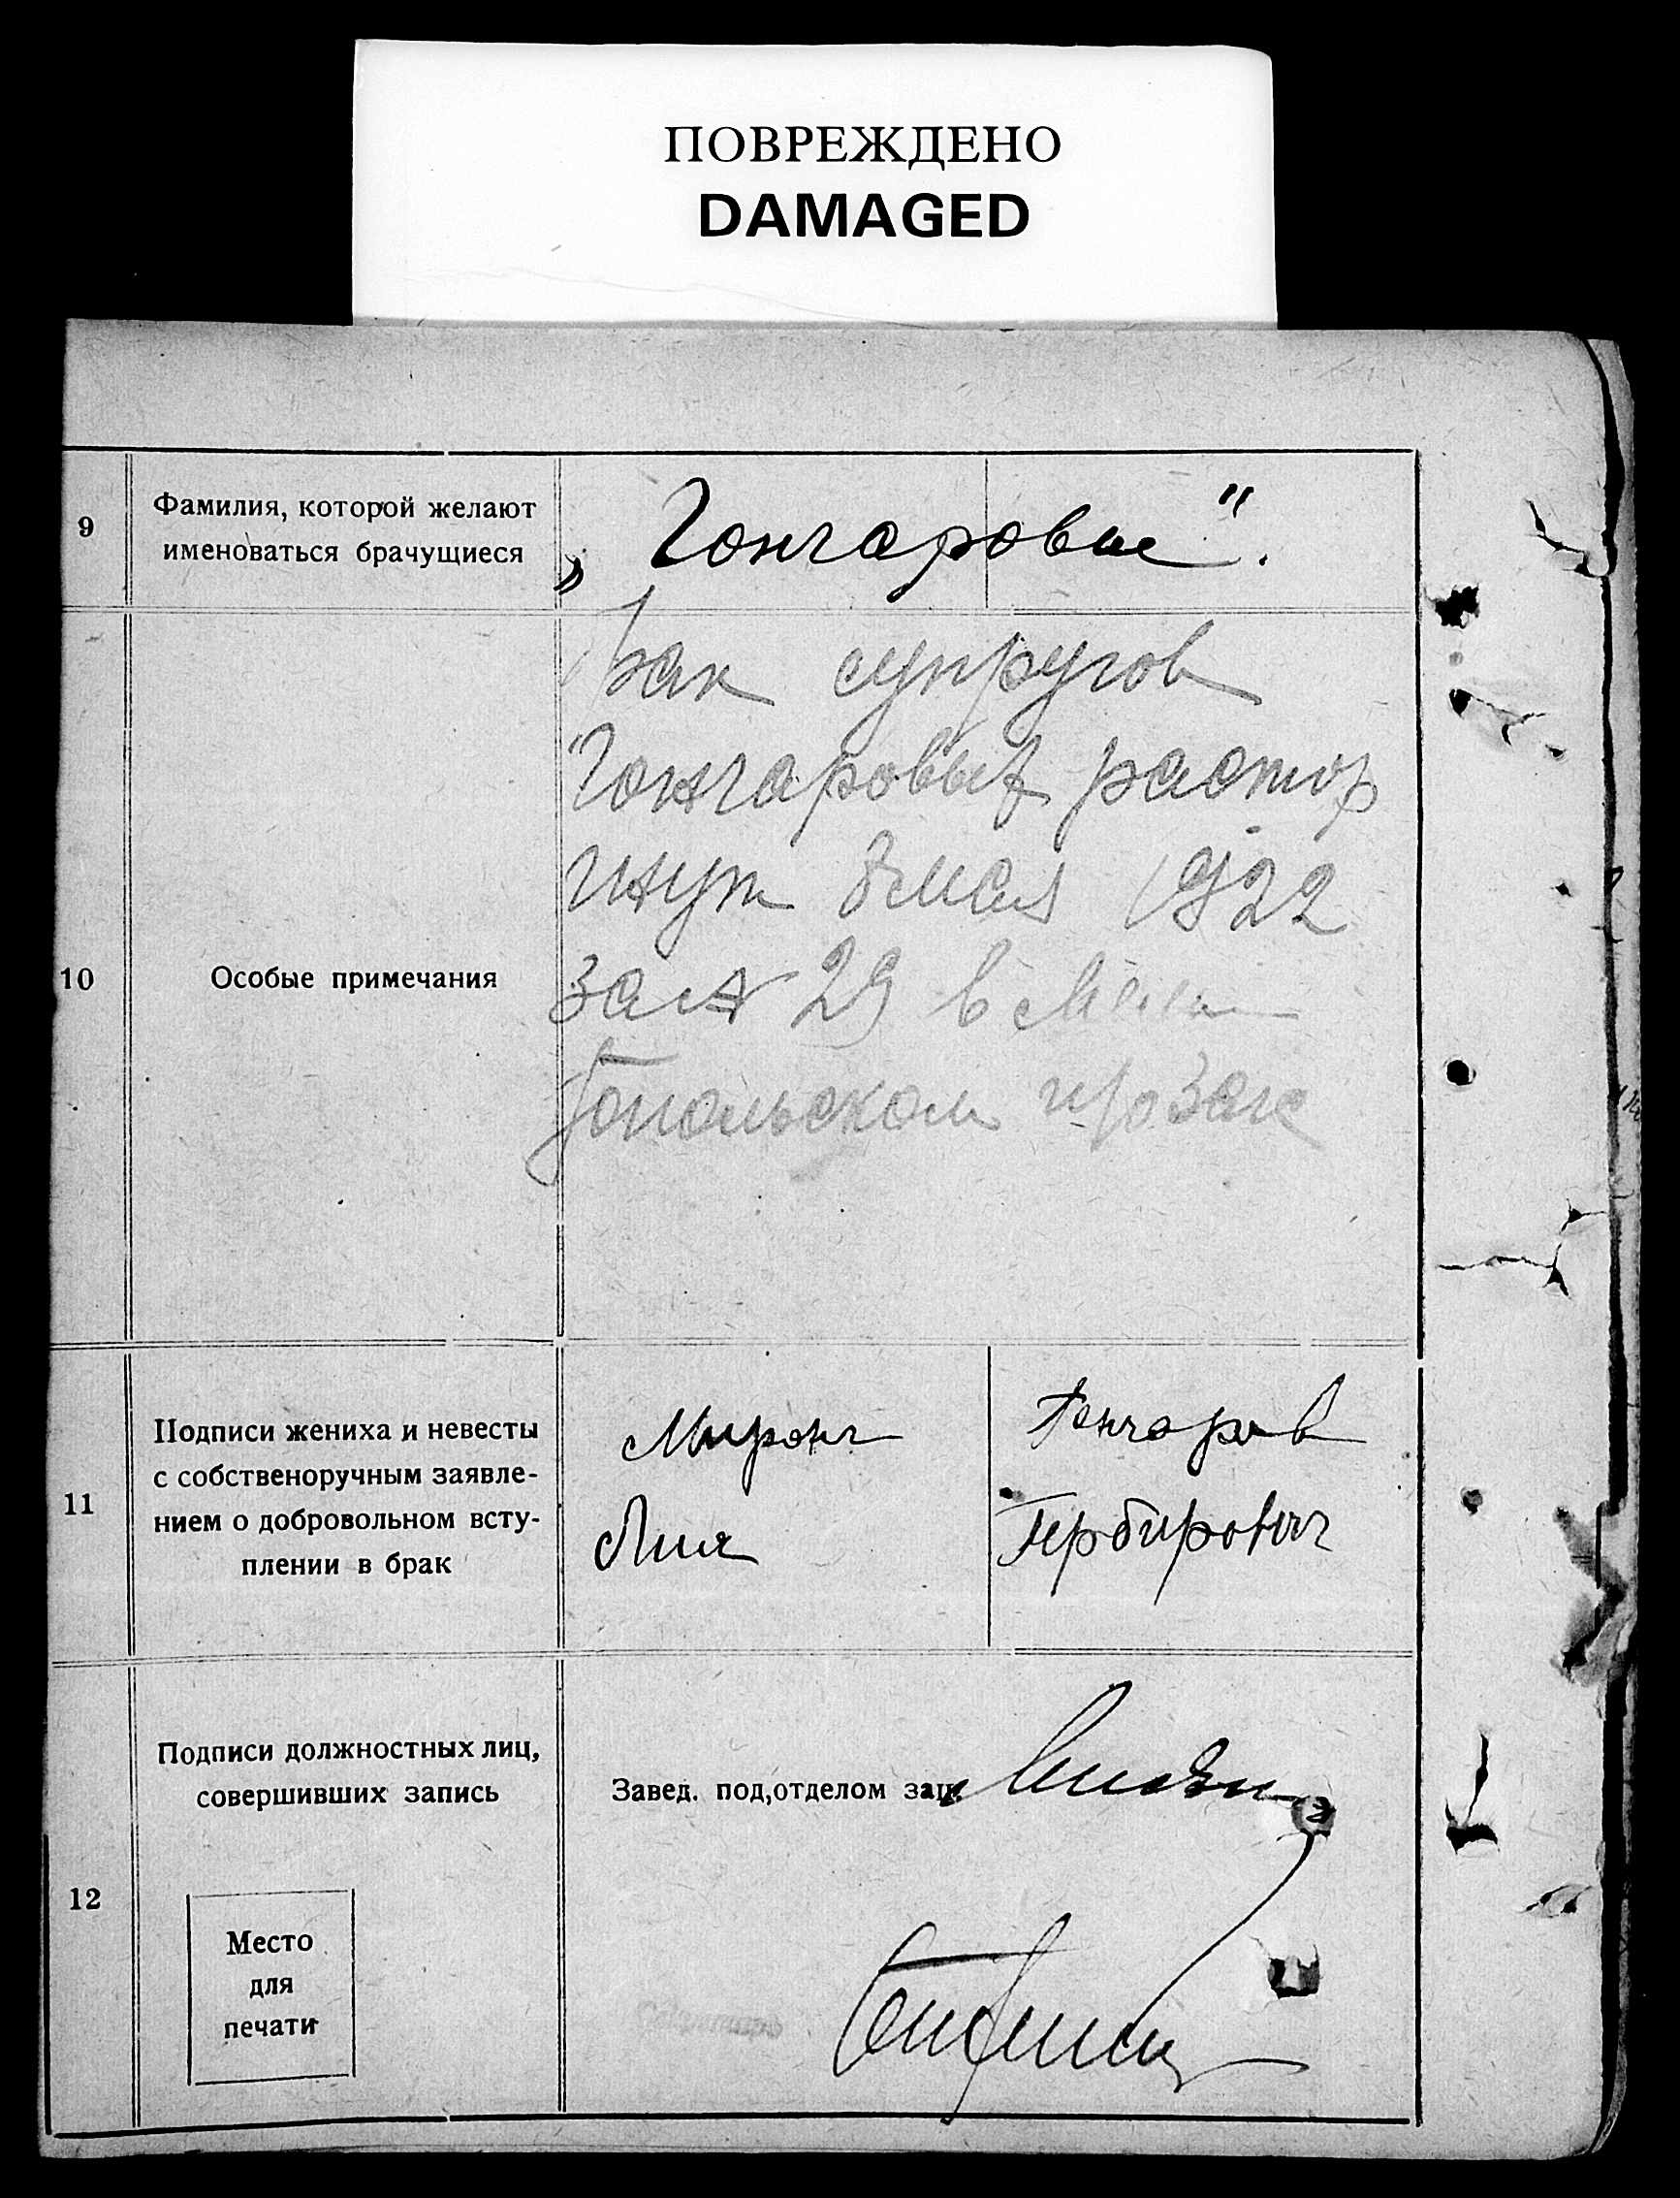 ПОВРЕЖДЕНО
DAMAGED
9
Фамилия, которой желают
именоваться брачущиеся
„Гончаровы“.
10
Особые примечания
Брак супругов
Гончаровых растор
гнут 8 мая 1922
за № 29 в Мели
топольском
11
Подписи жениха и невесты
с собственоручным заявле-
нием о добровольном всту-
плении в брак
Мирон Гончаров
Лия Гербирович
12
Подписи должностных лиц,
совершивших запись
Завед. под,отделом зап.
Место
для
печати